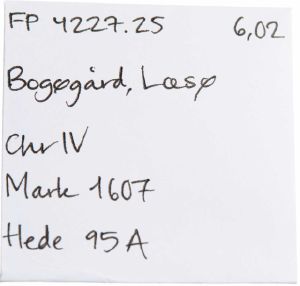 FP 4227.25 6,02
Bogøgård, Læsø
Chr IV
Mark 1607
Hede 95A